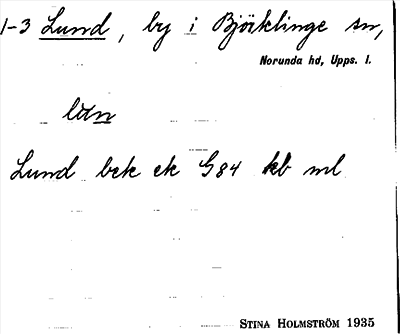 1-3 Lund, by i Björklinge sn,
Norunda hd, Upps. l.
Lund bek ek G 84 kb ml
STINA HOLMSTRÖM 1935